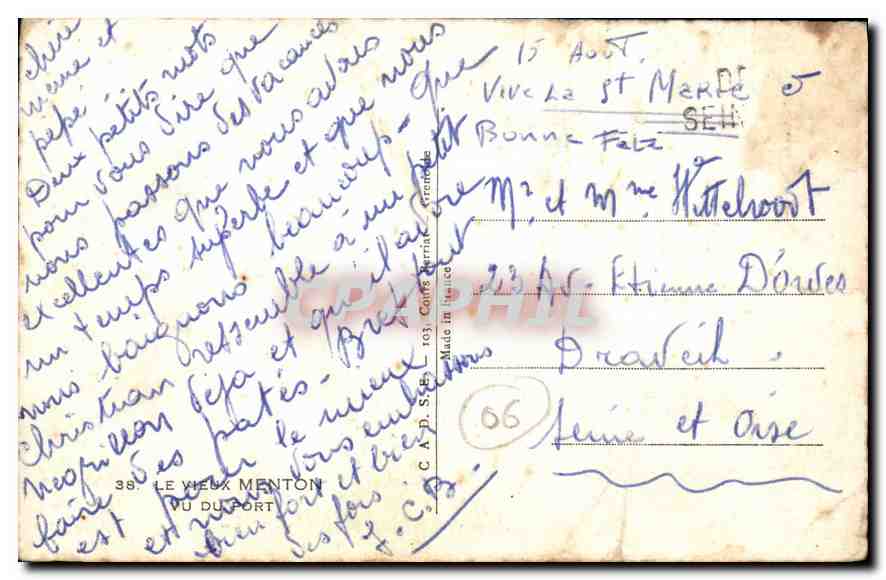 chère
mémé et
pépé
Deux petits mots
pour vous dire que
nous passons des vacances
excellentes que nous avons
un temps superbe et que nous
nous baignons beaucoup - que
Christian ressemble à un petit
négrillon déjà et qu'il adore
faire des patés - Bref tout
est pour le mieux
et nous vous embrassons
bien fort et bien
des fois.
J.C.B-
38. LE VIEUX MENTON
VU DU PORT
C A D S E — 103, Cours Berriat - Grenoble
Made in France
15 Août.
Vive La St Marie
Bonne Fete
DE
SEI
Mr et Mme Wittelvoort
23 Av. Etienne D'orves
Draveil.
Seine et Oise
06
CPAPHIL